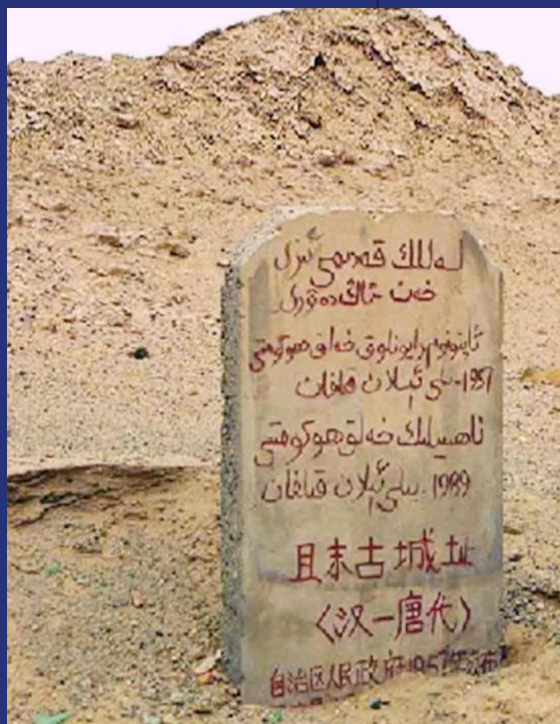 قەدىمى ئىزى
خەن تاڭ دەۋرى
ئاپتونوم رايونلۇق خەلق ھۆكۈمىتى
1957-يىلى ئېلان قىلغان
ناھىيىلىك خەلق ھۆكۈمىتى
1989-يىلى ئېلان قىلغان
且末古城址
〈汉一唐代〉
自治区人民政府1957年公布